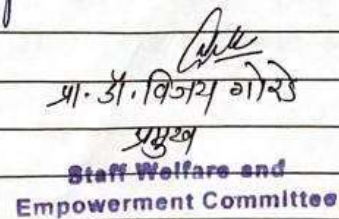 प्रा. डॉ. विजय गोरडे
प्रमुख
Staff Welfare and
Empowerment Committee